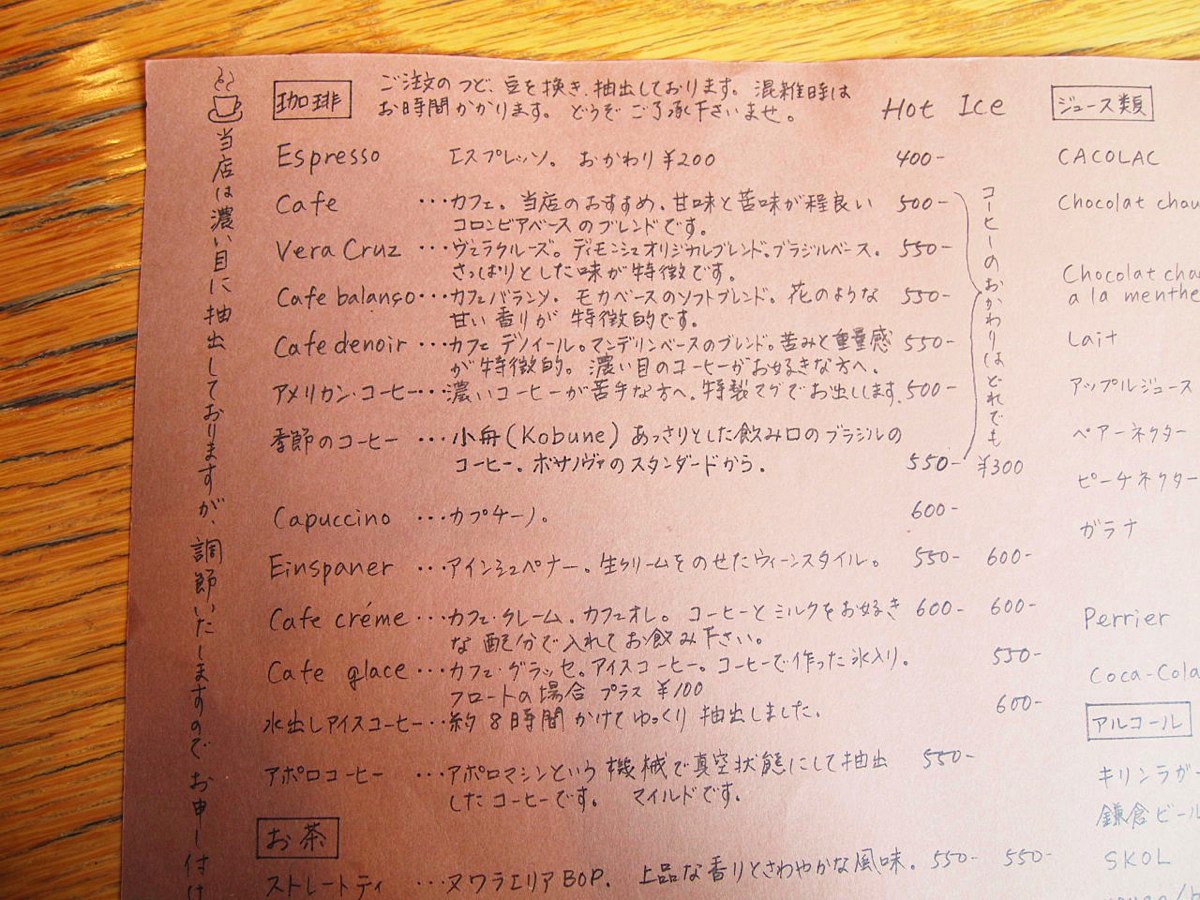 当店は濃い目に抽出しておりますが、調節いたしますのでお申し付け
珈琲
ご注文のつど、豆を挽き、抽出しております。混雑時は
お時間かかります。どうぞご了承下さいませ。
Hot Ice
Espresso エスプレッソ。おかわり¥200 400-
Cafe ・・・カフェ。当店のおすすめ、甘味と苦味が程良い 500-
コロンビアベースのブレンドです。
Vera Cruz ・・・ヴェラクルーズ。ディモンシュオリジナルブレンド。ブラジルベース。 550-
さっぱりとした味が特徴です。
Cafe balanço・・・カフェバランソ。モカベースのソフトブレンド。花のような 550-
甘い香りが特徴的です。
Cafe denoir ・・・カフェ デノイール。マンデリンベースのブレンド。苦みと重量感 550-
が特徴的。濃い目のコーヒーがお好きな方へ。
アメリカン・コーヒー・・・濃いコーヒーが苦手な方へ。特製マグでお出しします。500-
季節のコーヒー ・・・小舟(Kobune)あっさりとした飲み口のブラジルの
コーヒー。ボサノヴァのスタンダードから。 550-
コーヒーのおかわりはどれでも
¥300
Capuccino ・・・カプチーノ。 600-
Einspaner ・・・アインシュペナー。生クリームをのせたウィーンスタイル。 550- 600-
Cafe créme ・・・カフェ・クレーム。カフェオレ。コーヒーとミルクをお好き 600- 600-
な配分で入れてお飲み下さい。
Cafe glace ・・・カフェ・グラッセ。アイスコーヒー。コーヒーで作った氷入り。 550-
フロートの場合 プラス ¥100
水出しアイスコーヒー・・・約8時間かけてゆっくり抽出しました。 600-
アポロコーヒー ・・・アポロマシンという機械で真空状態にして抽出 550-
したコーヒーです。 マイルドです。
お茶
ストレートティ ・・・ヌワラエリアBOP. 上品な香りとさわやかな風味。 550- 550-
ジュース類
CACOLAC
Chocolat chau
Chocolat cha
a la menthe
Lait
アップルジュース
ペアーネクター
ピーチネクター
ガラナ
Perrier
Coca-Cola
アルコール
キリンラガー
鎌倉ビール
SKOL